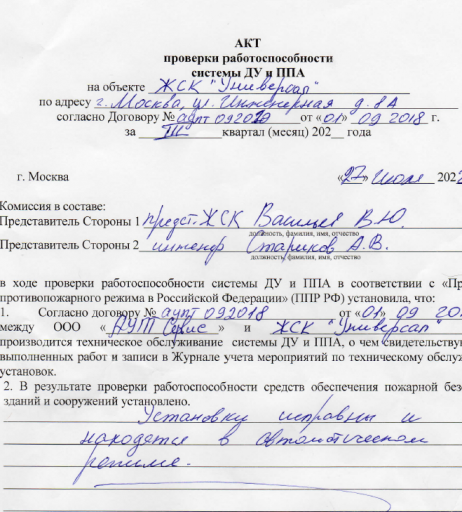 АКТ
проверки работоспособности
системы ДУ и ППА
на объекте ЖСК "Универсал"
по адресу г. Москва, ул. Инженерная д. 8А
согласно Договору № аупт 092018 от «01» 09 2018 г.
за III квартал (месяц) 202__ года
г. Москва «27» Июля 202
Комиссия в составе:
Представитель Стороны 1 предст. ЖСК В.Ю.
должность, фамилия, имя, отчество
Представитель Стороны 2 инженер Стариков А.В.
должность, фамилия, имя, отчество
в ходе проверки работоспособности системы ДУ и ППА в соответствии с «Пр
противопожарного режима в Российской Федерации» (ППР РФ) установила, что:
1. Согласно договору № аупт 092018 от «01» 09 2018
между ООО «АУПТ Сервис» и ЖСК "Универсал"
производится техническое обслуживание системы ДУ и ППА, о чем свидетельствую
выполненных работ и записи в Журнале учета мероприятий по техническому обслуж
установок.
2. В результате проверки работоспособности средств обеспечения пожарной без
зданий и сооружений установлено.
Установки исправны и
находятся в автоматическом
режиме.